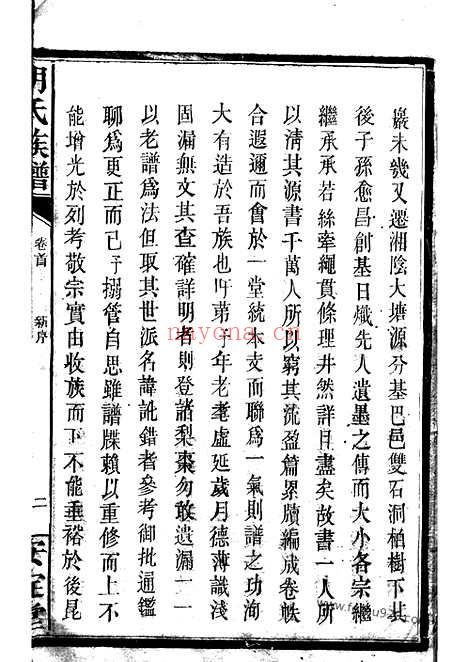 巖未幾又遷湘陰大塘源分基巴邑雙石洞柏樹下其
後子孫愈昌創基日熾先人遺墨之傳而大小各宗繼
繼承承若絲牽繩貫條理井然詳且盡矣故書一人所
以清其源書千萬人所以窮其流盈篇累牘編成卷帙
合遐邇而會於一堂統本支而聯爲一氣則譜之功洵
大有造於吾族也
第 年老耄虛延歲月德薄識淺
固漏無文其查確詳明者則登諸梨棗勿敢遺漏一一
以老譜爲法但取其世派名諱訛錯者參考御批通鑑
聊爲更正而已予搦管自思雖譜牒賴以重修而上不
能增光於列考敬宗實由收族而下不能垂裕於後昆
氏族譜
卷首
新序
二
安定堂
nayona.cn